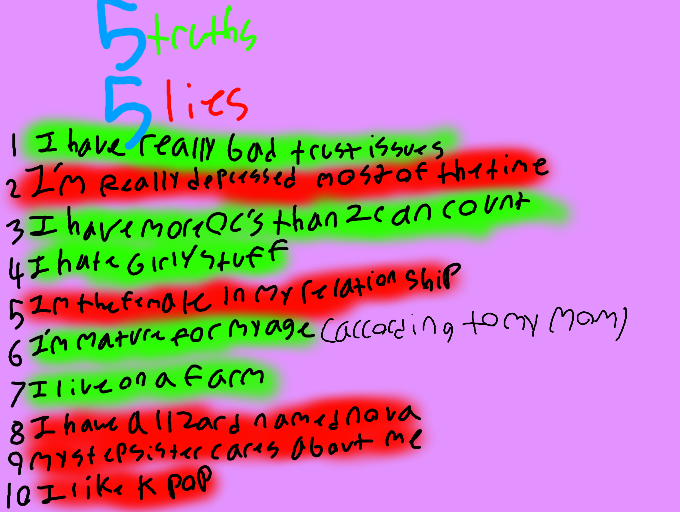 5 truths
5 lies
1 I have really bad trust issues
2 I'm really depressed most of the time
3 I have more OC's than I can count
4 I hate Girly stuff
5 Im the female in my relationship
6 I'm mature for my age (according to my mom)
7 I live on a farm
8 I have a lizard named nova
9 my stepsister cares about me
10 I like k pop